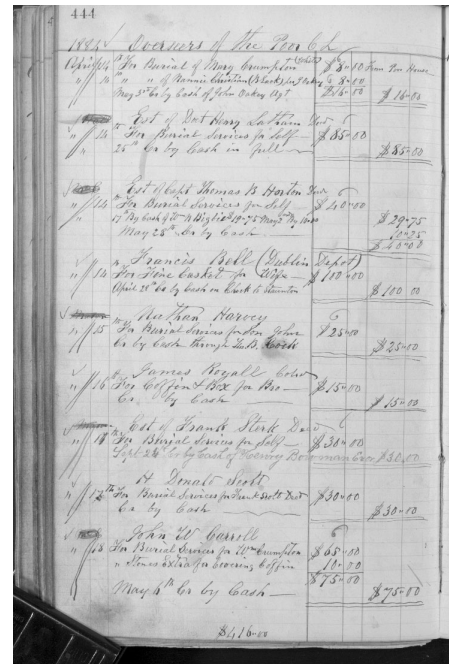 444
Overseers of the Poor
April 14 For Burial of Mary Crumpton $8-00 From Poor House
" 14 " " of Nannie Christian 8-00
May 3rd Cr by Cash of John Oakey Agt $16-00 $16-00
Est of Mary Latham Decd
" 14 For Burial Services for Self $85-00
25th Cr by Cash in full $85-00
Est of Capt Thomas B Horton Decd
" 14 For Burial Services for Self $40-00
$29-75
May 25th Cr by Cash 10-25
$40-00
Francis Bell (Dublin Depot)
" 14 For Fine Casket for Wife $100-00
April 20th Cr by Cash on Check to Staunton $100-00
Nathan Harvey
" 15 For Burial Services for Son John $25-00
Cr by Cash through $25-00
James Royall Cold
" 16 For Coffin & Box for Bro $15-00
Cr by Cash $15-00
Est of Frank Decd
" 18 For Burial Services for Self $30-00
Sept 24th Cr by Cash of Henry Bowman Exr $30.00
H Donald Scott
" 12th For Burial Services for Scott Decd $30-00
Cr by Cash $30-00
John W Carroll
" 18 For Burial Services for Wm Crumpton $65-00
" extra for covering Coffin 10-00
$75-00
May 6th Cr by Cash $75-00
$416-00